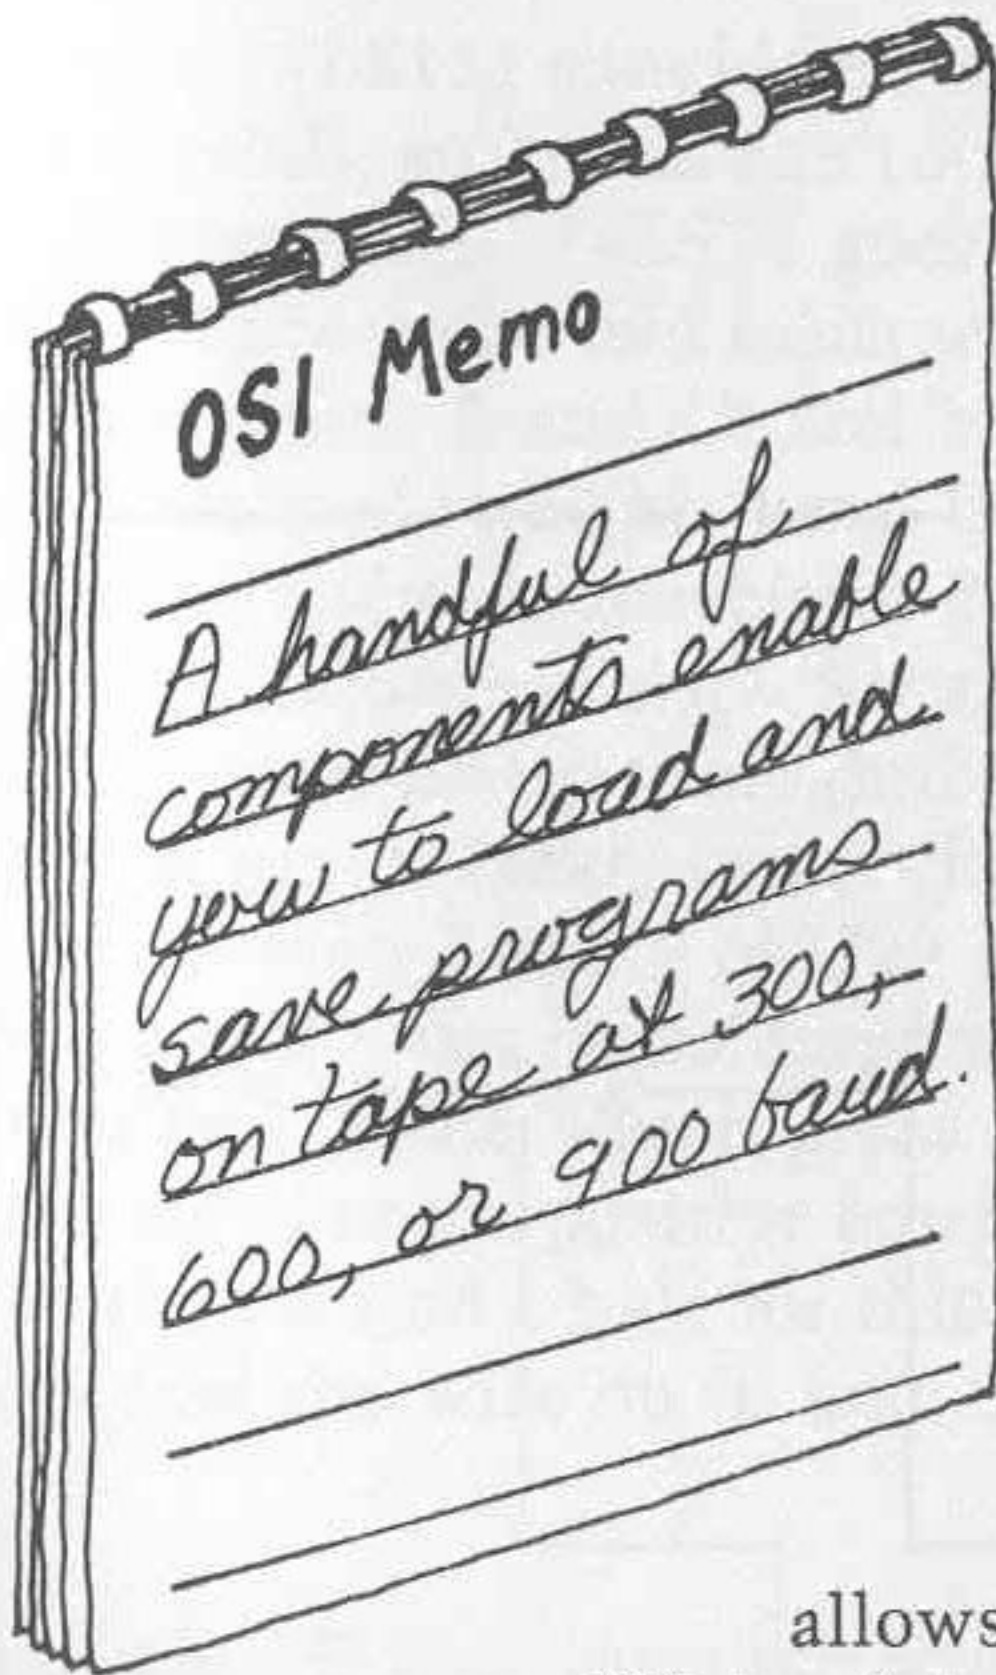 OSI Memo
A handful of
components enable
you to load and
save programs
on tape at 300,
600, or 900 baud.
allows